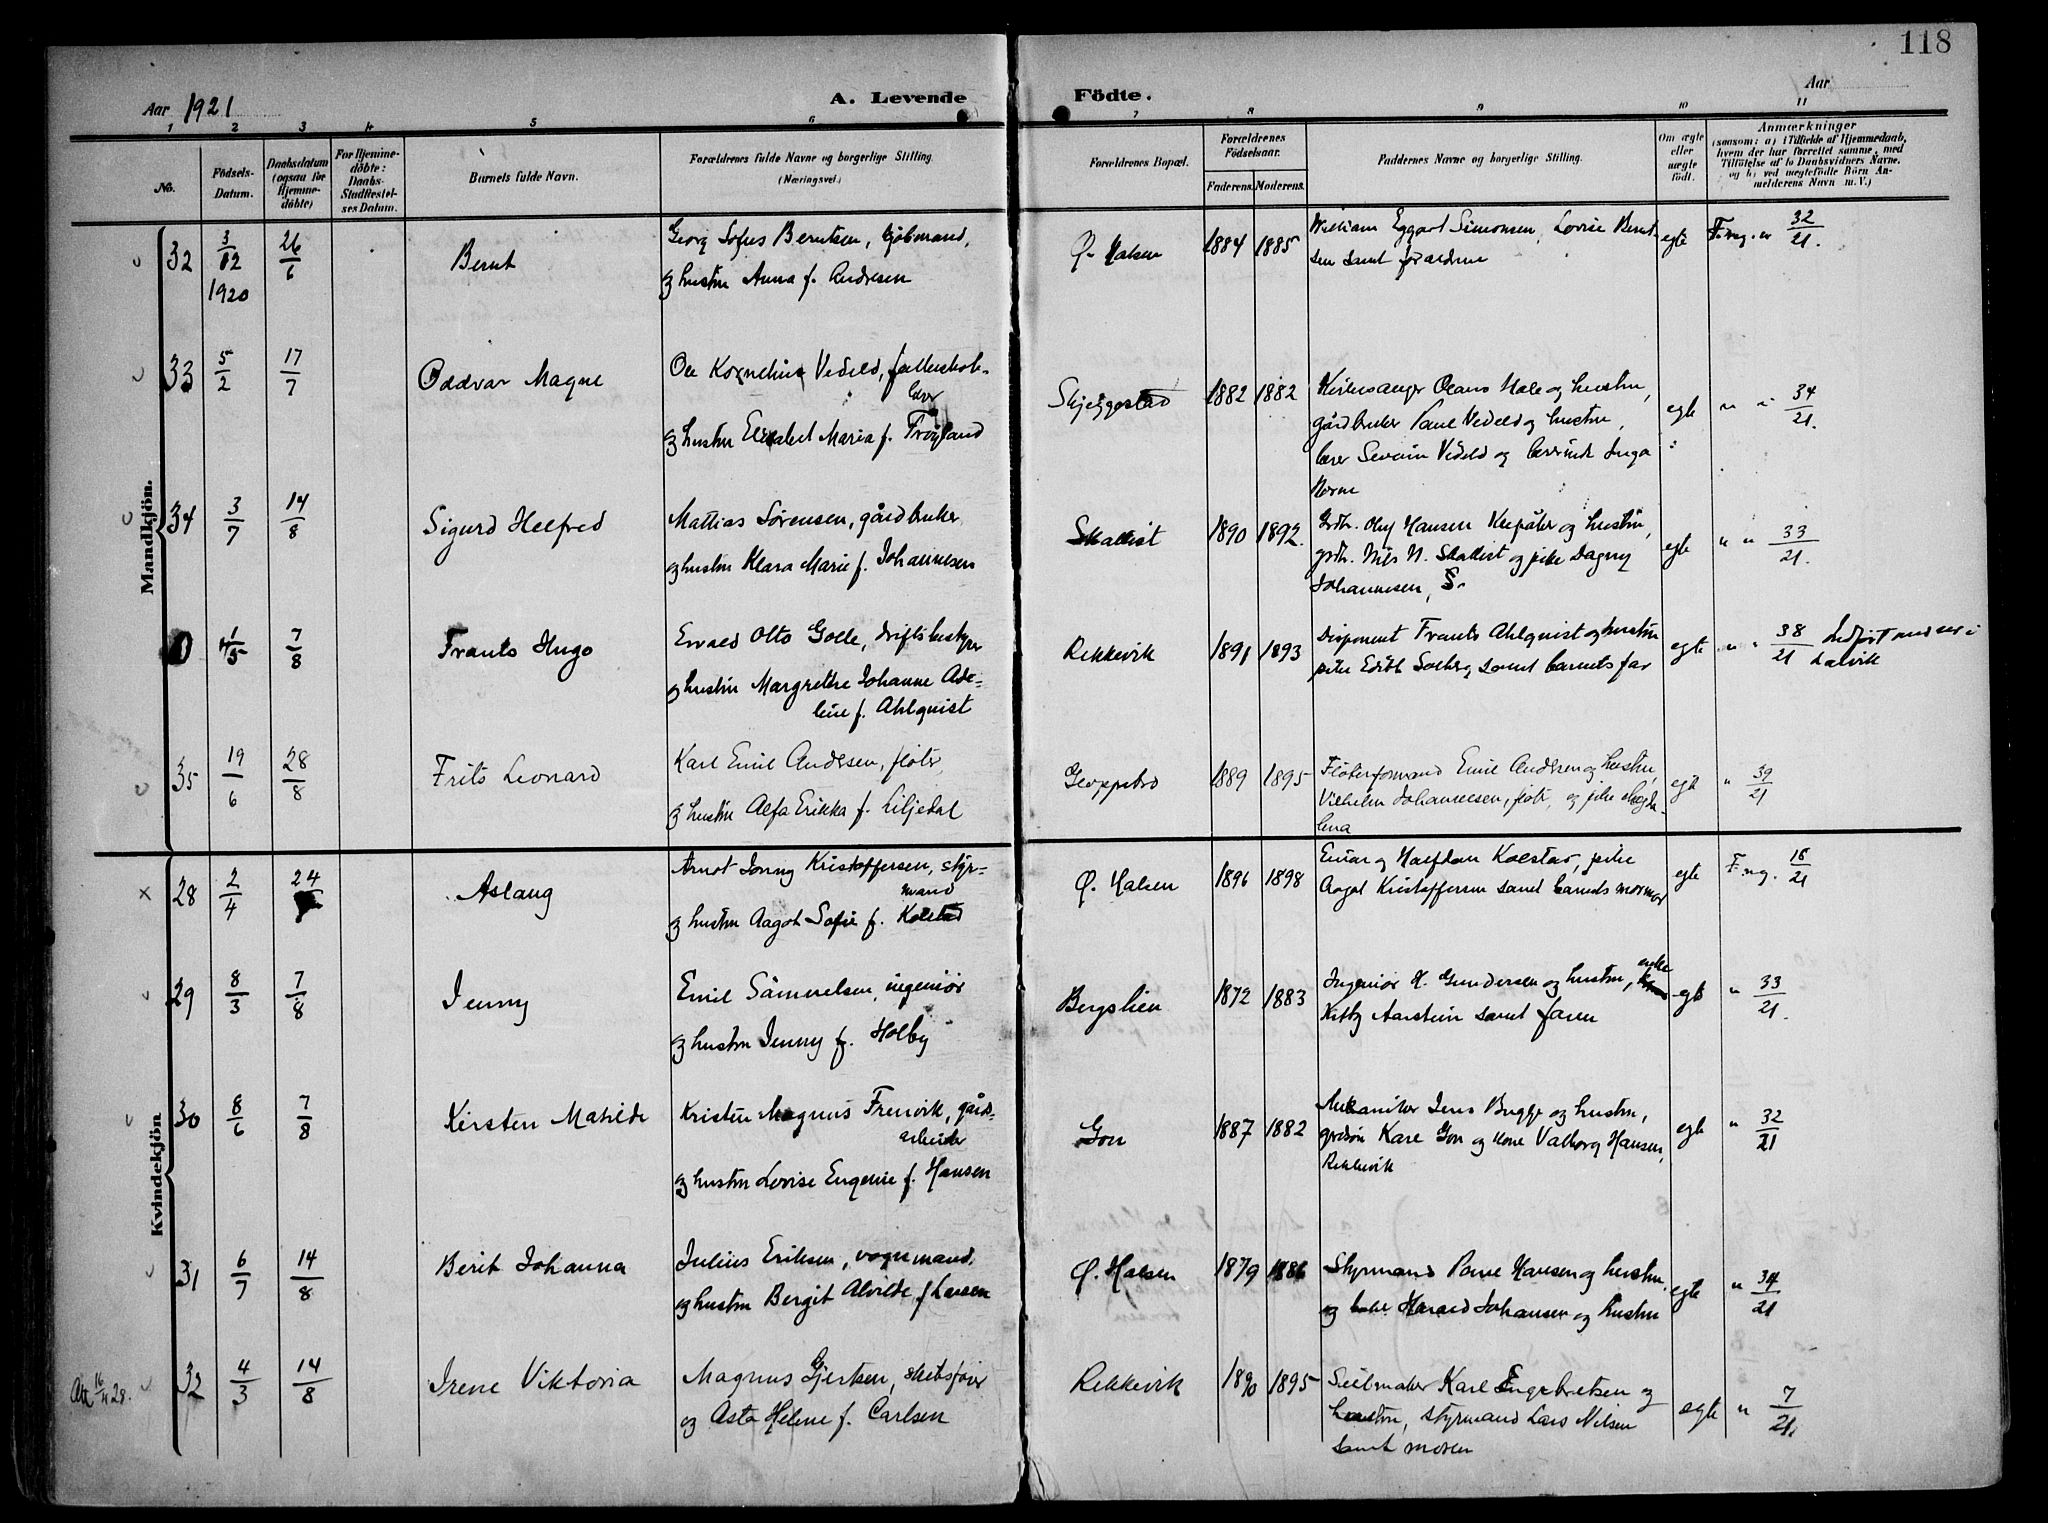 118
Aar 1921
A. Levende
Födte.
Aar
1 2 3 4 5 6 7 8 9 10 11
No.
Födsels-
Datum.
Daabsdatum
(ogsaa for
Hjemme-
döbte)
For Hjemme-
döbte:
Daabs-
Stadfæstel-
ses Datum.
Barnets fulde Navn.
Forældrenes fulde Navne og borgerlige Stilling.
(Næringsvei.)
Forældrenes Bopæl.
Forældrenes
Födselsaar.
Faderens. Moderens.
Faddernes Navne og borgerlige Stilling.
Om ægte
eller
uægte
födt.
Anmærkninger
(saasom: a) i Tilfælde af Hjemmedaab,
hvem der har forrettet samme, med
Tilföielse af to Daabsvidners Navne.
og b) ved uægtefödte Börn An-
melderens Navn m. V.)
Mandkjön.
32 3/12 1920 26/6 Bernt
Georg Sofus Berntsen, kjöbmand,
og hustru Anna f. Andresen
Ø. Halsen 1884 1885
William Eggart Simonsen, Lovise Bernt-
sen samt forældrene
egte
F.mg. nr 32/21.
33 5/2 17/7 Oddvar Magne
Ole Kornelius Vedeld, folkeskole-
lærer
og hustru Elisabet Maria f. Frøyland
Skjeggestad 1882 1882
Kirkesanger Olaus Hole og hustru,
gårdbruker Paul Vedeld og hustru,
lærer Severin Vedeld og lærerinde Inga
Horne
egte " " 34/21.
34 3/7 14/8 Sigurd Helfred
Mattias Sørensen, gårdbruker
og hustru Klara Marie f. Johannesen
Skallist 1890 1892.
Grdbr. Oluf Hansen og hustru,
grdbr. Nils N. Skallist og pike Dagny
Johannesen, S.
egte " " 33/21.
0 1/5 7/8 Frants Hugo
Ewald Otto Golle, driftsbestyrer
og hustru Margrethe Johanne Ade-
leine f. Ahlquist
Rekkevik 1891 1893
Disponent Frants Ahlquist og hustru
pike Edith Solberg samt barnets far
egte " " 38/21 Indfört under i
Larvik
35 19/6 28/8 Frits Leonard
Karl Emil Andersen, fløter,
og hustru Alfa Erikka f. Liljedal
Gloppebo 1889 1895
Fløterformand Emil Andersen og hustru,
Vilhelm Johannessen, fløter, og pike Magda-
lena
egte " 39/21
Kvindekjön
28 2/4 24/ Aslaug
Arnot Jonny Kristoffersen, styr-
mand
og hustru Aagot Sofie f. Kolstad
Ø. Halsen 1896 1898
Einar og Halfdan Kolstad, pike
Aagot Kristoffersen samt barnets mormor
egte F.mg. 18/21
29 8/3 7/8 Jenny
Emil Samuelsen, ingeniør
og hustru Jenny f. Holby
Bergslien 1872 1883
Ingeniør H. Gundersen og hustru, enke
Kitby Aarstein samt faren
egte " 33/21.
30 8/6 7/8 Kirsten Matilde
Kristen Magnus Frenvik, gårds-
arbeider
og hustru Lovise Eugenie f. Hansen
Gon 1887 1882
Mekaniker Jens Bugge og hustru,
grdsön Kare Gon og kone Valborg Hansen,
Rekkevik
egte " 32/21
31 6/7 14/8 Berit Johanna
Julius Eriksen, vognmand,
og hustru Bergit Alvilde f. Larsen
Ø. Halsen 1879 1886
Styrmand Paul Hansen og hustru
og Harald Johansen og hustru
egte " 34/21
Att 16/4 28.
32 4/3 14/8 Irene Viktoria
Magnus Gjertsen, skibsfører
og Asta Helene f. Carlsen
Rekkevik 1890 1895
Seilmaker Karl Engebretsen og
hustru, styrmand Lars Nilsen
samt moren
egte " 7/21.